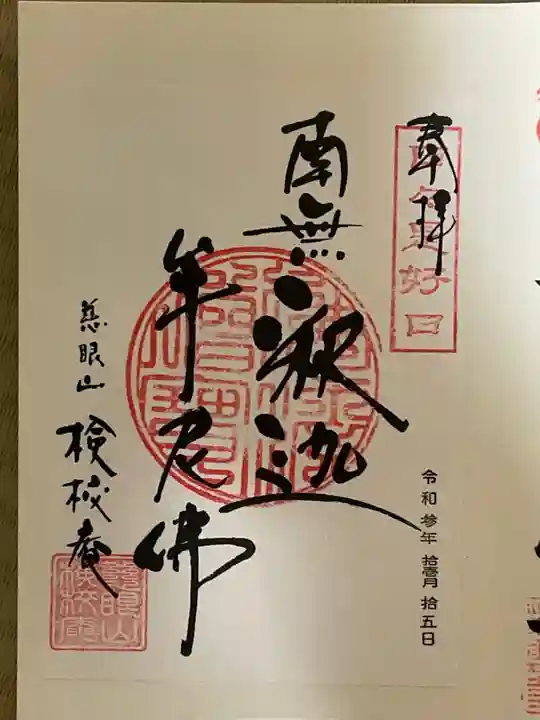 奉拝
好日
南無釈迦
牟尼佛
令和参年 拾壱月 拾五日
慈眼山
検校庵
慈眼山
検校庵